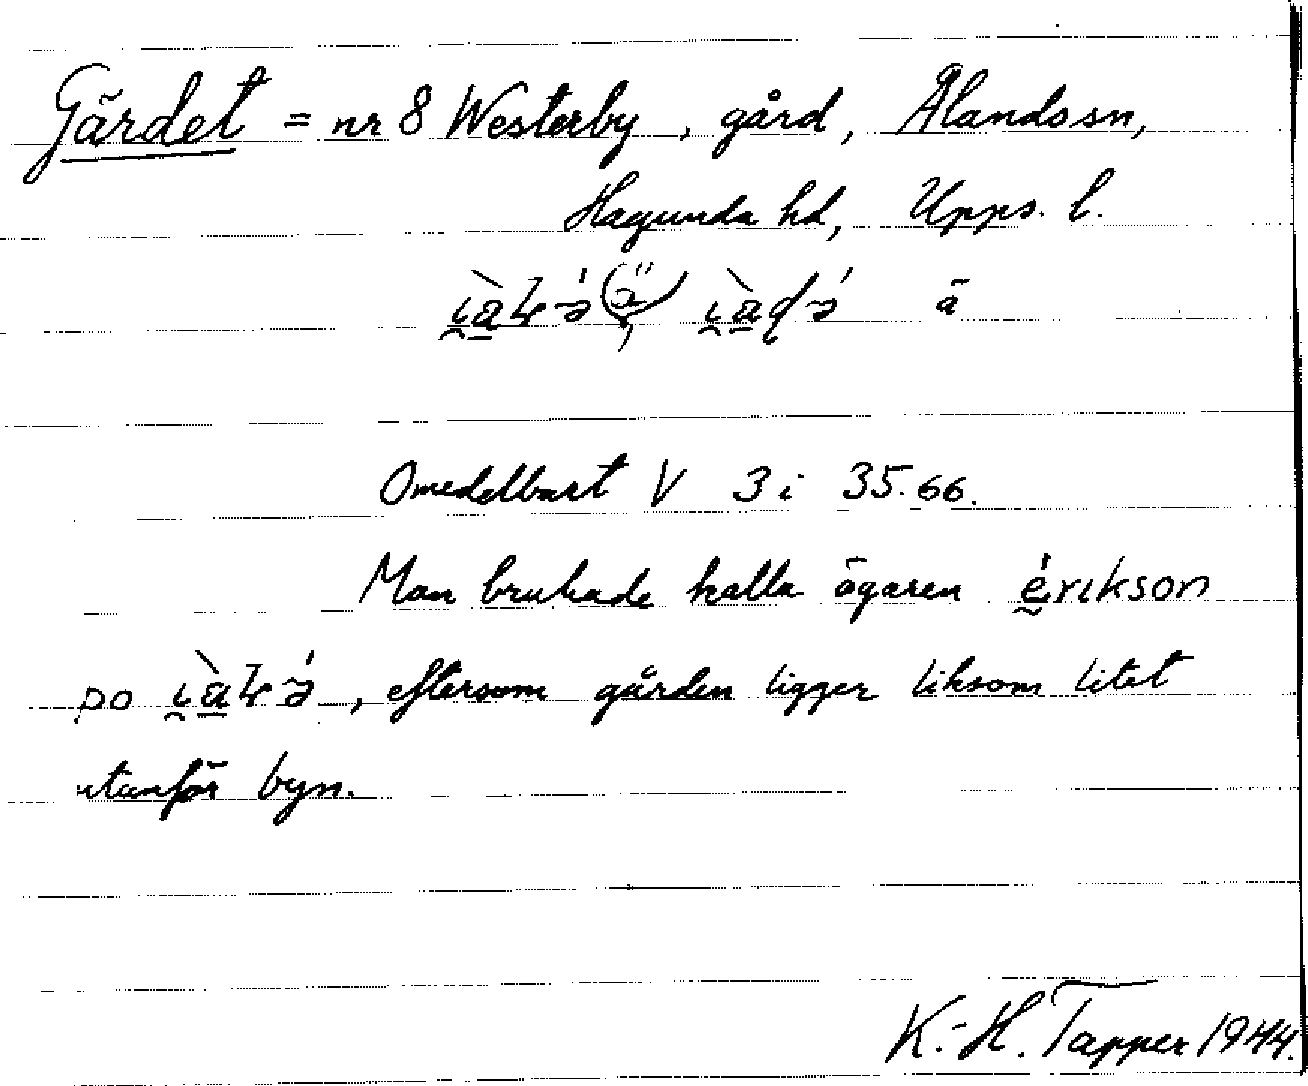 Gärdet = nr 8 Westerby, gård, Ålands sn,
Hagunda hd, Upps. l.
ä
Omedelbart V 3 i 35.66.
Man brukade kalla ägaren érikson
po, eftersom gården ligger liksom litet
utanför byn.
K.-H. Tapper 1944.